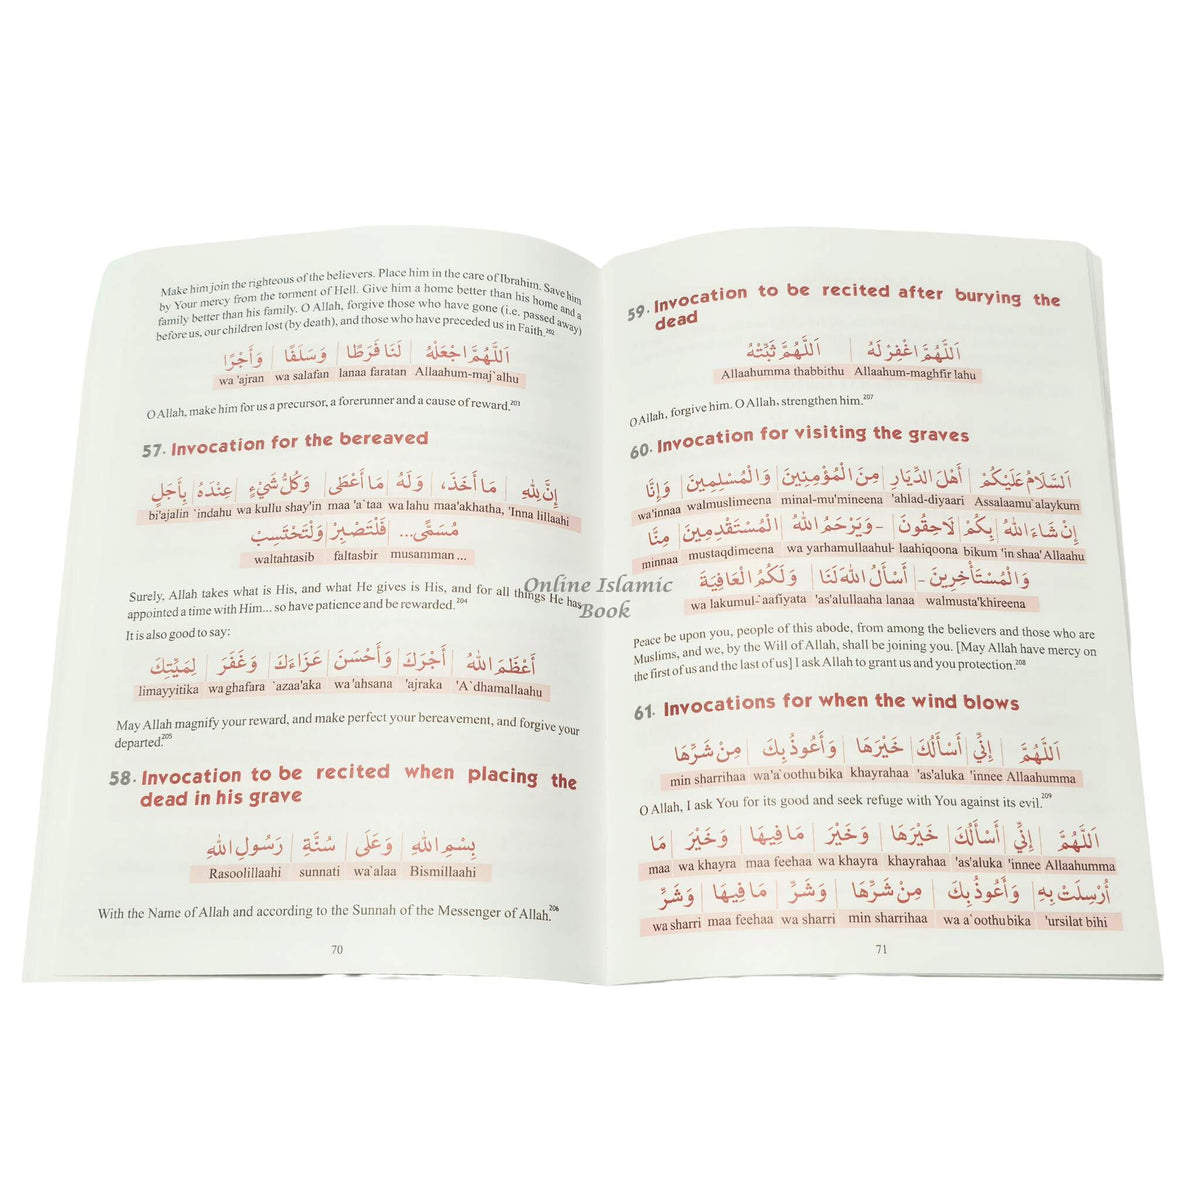 Make him join the righteous of the believers. Place him in the care of Ibrahim. Save him
by Your mercy from the torment of Hell. Give him a home better than his home and a
family better than his family. O Allah, forgive those who have gone (i.e. passed away)
before us, our children lost (by death), and those who have preceded us in Faith.202
اَللّٰهُمَّ اجْعَلْهُ لَنَا فَرَطًا وَسَلَفًا وَأَجْرًا
wa 'ajran wa salafan lanaa faratan Allaahum-maj`alhu
O Allah, make him for us a precursor, a forerunner and a cause of reward.203
57. Invocation for the bereaved
إِنَّ لِلّٰهِ مَا أَخَذَ، وَلَهُ مَا أَعْطَى وَكُلُّ شَيْءٍ عِنْدَهُ بِأَجَلٍ
bi'ajalin `indahu wa kullu shay'in maa 'a`taa wa lahu maa'akhatha, 'Inna lillaahi
مُسَمًّى... فَلْتَصْبِرْ وَلْتَحْتَسِبْ
waltahtasib faltasbir musamman ...
Surely, Allah takes what is His, and what He gives is His, and for all things He has
appointed a time with Him... so have patience and be rewarded.204
It is also good to say:
أَعْظَمَ اللهُ أَجْرَكَ وَأَحْسَنَ عَزَاءَكَ وَغَفَرَ لِمَيِّتِكَ
limayyitika wa ghafara `azaa'aka wa 'ahsana 'ajraka 'A`dhamallaahu
May Allah magnify your reward, and make perfect your bereavement, and forgive your
departed.205
58. Invocation to be recited when placing the
dead in his grave
بِسْمِ اللهِ وَعَلَى سُنَّةِ رَسُولِ اللهِ
Rasoolillaahi sunnati wa`alaa Bismillaahi
With the Name of Allah and according to the Sunnah of the Messenger of Allah.206
70
Online Islamic
Book
59. Invocation to be recited after burying the
dead
اَللّٰهُمَّ اغْفِرْ لَهُ اَللّٰهُمَّ ثَبِّتْهُ
Allaahumma thabbithu Allaahum-maghfir lahu
O Allah, forgive him. O Allah, strengthen him.207
60. Invocation for visiting the graves
اَلسَّلَامُ عَلَيْكُمْ أَهْلَ الدِّيَارِ مِنَ الْمُؤْمِنِينَ وَالْمُسْلِمِينَ وَإِنَّا
wa'innaa walmuslimeena minal-mu'mineena 'ahlad-diyaari Assalaamu`alaykum
إِنْ شَاءَ اللهُ بِكُمْ لَاحِقُونَ - وَيَرْحَمُ اللهُ الْمُسْتَقْدِمِينَ مِنَّا
minnaa mustaqdimeena wa yarhamullaahul- laahiqoona bikum 'in shaa' Allaahu
وَالْمُسْتَأْخِرِينَ - أَسْأَلُ اللهَ لَنَا وَلَكُمُ الْعَافِيَةَ
wa lakumul-`aafiyata 'as'alullaaha lanaa walmusta'khireena
Peace be upon you, people of this abode, from among the believers and those who are
Muslims, and we, by the Will of Allah, shall be joining you. [May Allah have mercy on
the first of us and the last of us] I ask Allah to grant us and you protection.208
61. Invocations for when the wind blows
اَللّٰهُمَّ إِنِّي أَسْأَلُكَ خَيْرَهَا وَأَعُوذُ بِكَ مِنْ شَرِّهَا
min sharrihaa wa'a`oothu bika khayrahaa 'as'aluka 'innee Allaahumma
O Allah, I ask You for its good and seek refuge with You against its evil.209
اَللّٰهُمَّ إِنِّي أَسْأَلُكَ خَيْرَهَا وَخَيْرَ مَا فِيهَا وَخَيْرَ مَا
maa wa khayra maa feehaa wa khayra khayrahaa 'as'aluka 'innee Allaahumma
أُرْسِلَتْ بِهِ وَأَعُوذُ بِكَ مِنْ شَرِّهَا وَشَرِّ مَا فِيهَا وَشَرِّ
wa sharri maa feehaa wa sharri min sharrihaa wa a`oothu bika 'ursilat bihi
71